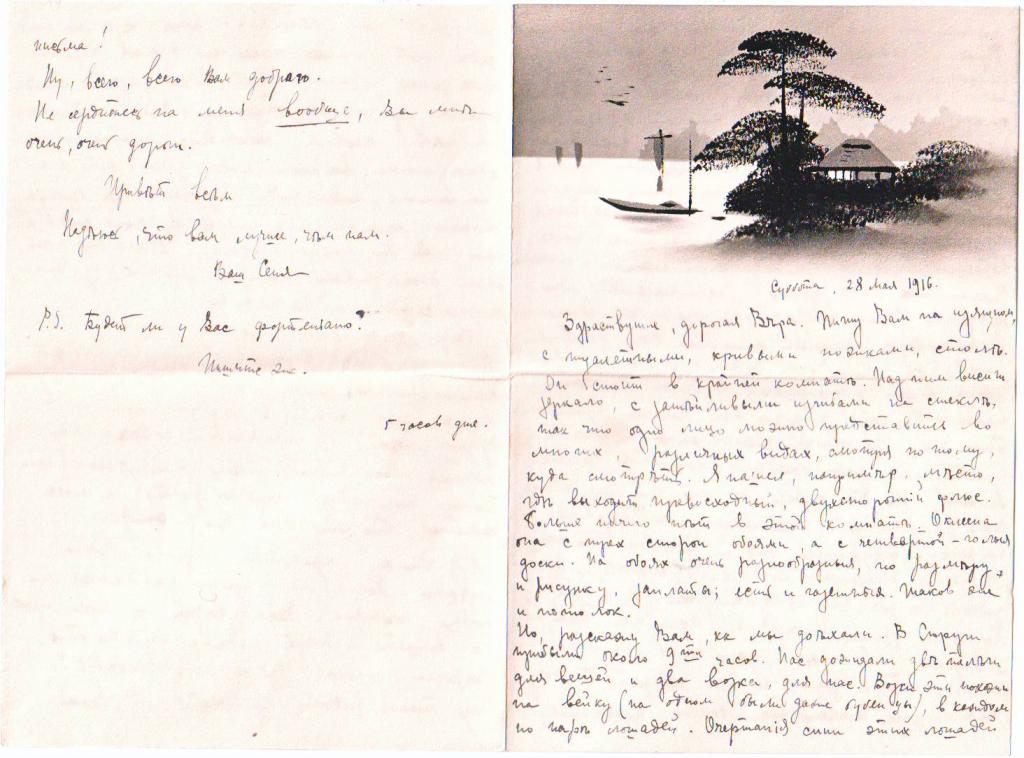 письма!
Ну, всего, всего Вам добраго.
Не сердитесь на меня вообще, Вы мнѣ
очень, очень дороги.
Привѣтъ всѣм
Надѣюсь, что вам лучше, чѣм нам.
Ваш Сеня
P.S. Будет ли у Вас фортепiано?
Пишите же.
5 часов дня.
Суббота, 28 мая 1916.
Здраствуйте, дорогая Вѣра. Пишу Вам на изящном,
с туалетными, кривыми ножками, столѣ.
Он стоит в крайней комнатѣ. Над ним висит
зеркало, с затѣйливыми изгибами на стеклѣ,
так что одно лицо можно представить во
многих, различных видах, смотря по тому,
куда смотрѣть. Я нашел, напримѣр, мѣсто,
гдѣ выходит превосходный, двухсторонний флюс.
Больше ничего нѣт в этой комнатѣ. Оклеена
она с трех сторон обоями, а с четвертой – голыя
доски. На обоях очень разнообразныя, по размѣру
и рисунку, заплаты; есть и газетныя. Таков же
и потолок.
Но, разскажу Вам, как мы доѣхали. В Струги
прибыли около 9ти часов. Нас дожидали двѣ
для вещей и два возка, для нас. Возки эти похожи
на вейку (на одном были даже бубенцы), в каждом
по парѣ лошадей. Очертанiя спин этих лошадей